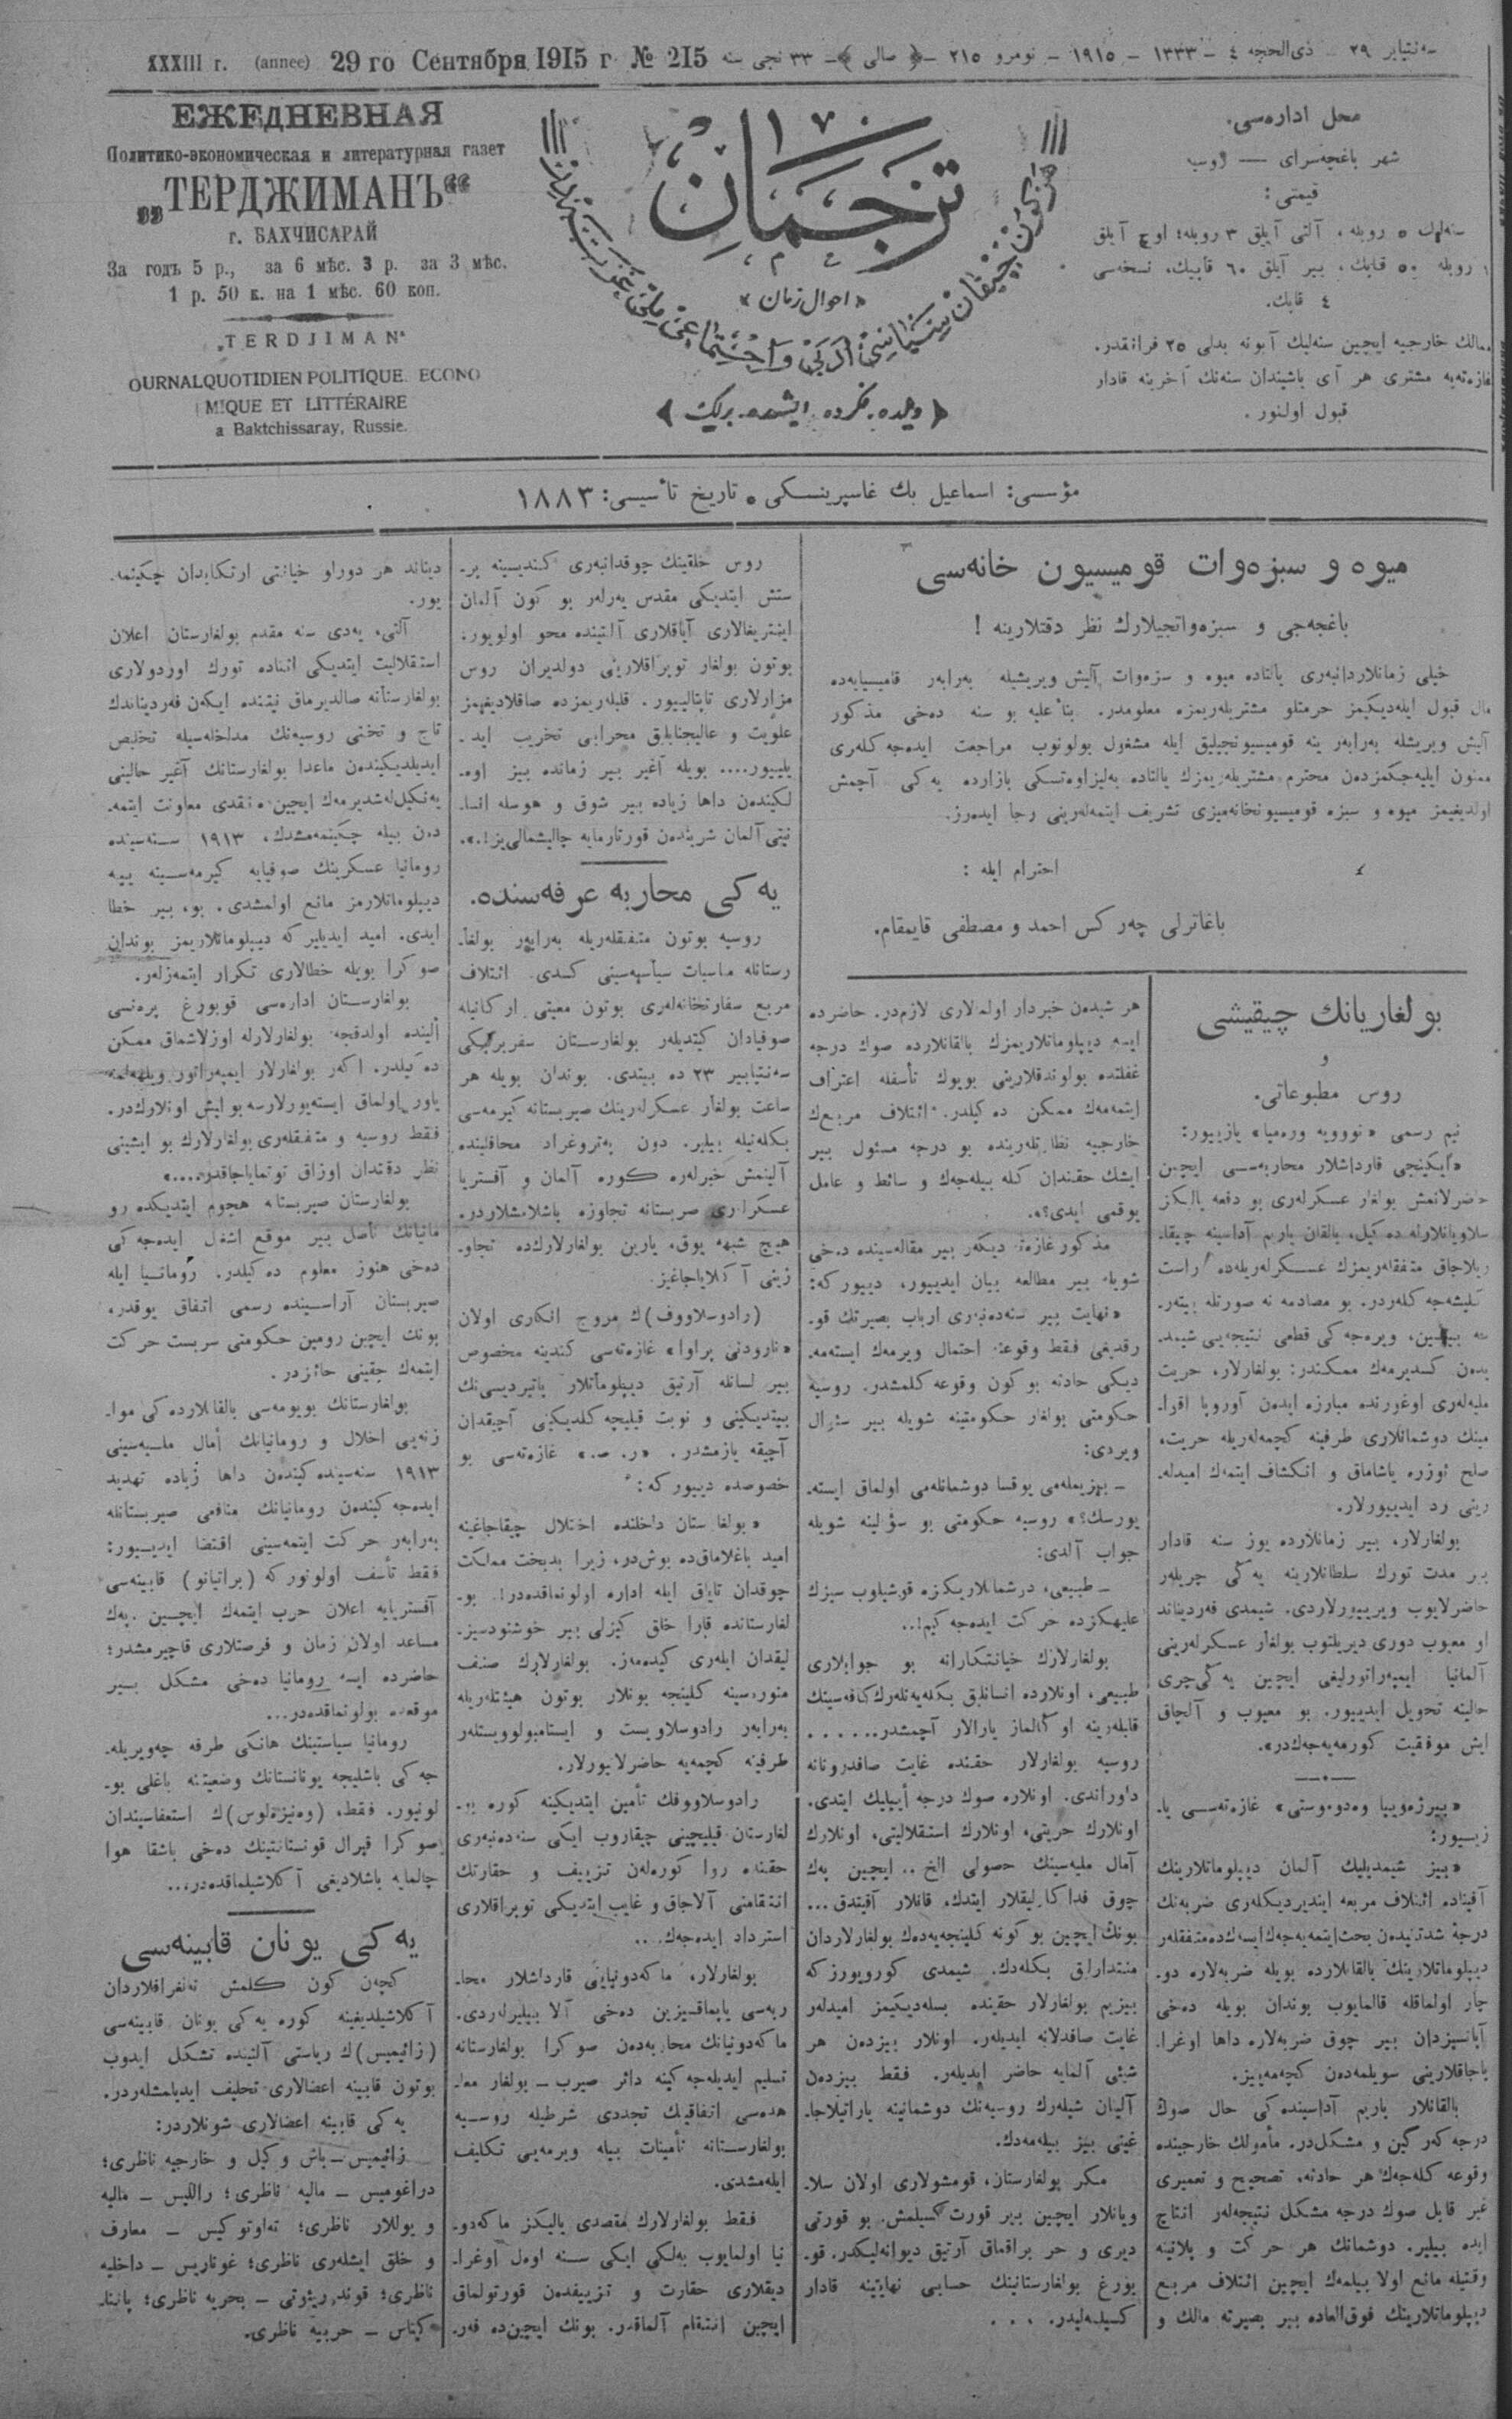 XXXIII г. (annee) 29 го Сентября 1915 г № 215 سه‌نتیابر ٢٩ ذی‌الحجه ٤ – ١٣٣٣ – ١٩١٥ – نومرو ٢١٥ – ﴿صالی﴾ – ٣٣ نجی سنه
ЕЖЕДНЕВНАЯ
Политико-экономическая и литературная газет
„ТЕРДЖИМАНЪ“
г. БАХЧИСАРАЙ
За годъ 5 р., за 6 мѣс. 3 р. за 3 мѣс.
1 р. 50 к. на 1 мѣс. 60 коп.
„TERDJIMAN“
OURNALQUOTIDIEN POLITIQUE. ECONO
MIQUE ET LITTÉRAIRE
a Baktchissaray, Russie.
ترجمان
«احوال زمان»
هر كون چیقان سیاسی، ادبی و اجتماعی ملی غزته‌در
﴿دیلده. فكرده. ایشده. برلك﴾
محل اداره‌سی.
شهر باغچه‌سرای — روسیه
قیمتی:
سنه‌لك ٥ روبله، آلتی آیلق ٣ روبله؛ اوچ آیلق
١ روبله ٥٠ قاپك، بیر آیلق ٦٠ قاپیك، نسخه‌سی
٤ قاپك.
ممالك خارجیه ایچین سنه‌لیك آبونه بدلی ٢٥ فرانقدر.
غازه‌ته‌یه مشتری هر آی باشیندان سنه‌نك آخرینه قادار
قبول اولنور.
مؤسسی: اسماعیل بك غاسپرینسكی • تاریخ تأسیسی: ١٨٨٣
میوه و سبزه‌وات قومیسیون خانه‌سی
باغچه‌جی و سبزه‌واتجیلارك نظر دقتلارینه !
خیلی زمانلاردانبه‌ری یالتاده میوه و سبزه‌وات آلیش ویریشیله به‌رابه‌ر قامیسیایه‌ده
مال قبول ایله‌دیكیمز حرمتلو مشتریله‌ریمزه معلومدر. بناءً علیه بو سنه ده‌خی مذكور
آلیش ویریشله به‌رابه‌ر ینه قومیسیونجیلیق ایله مشغول بولونوب مراجعت ایده‌جه‌كله‌ری
ممنون ایلیه‌جكمزدن محترم مشتریله‌ریمزك یالتاده به‌لیزاوه‌تسكی بازارده یه‌كی آچمش
اولدیغیمز میوه و سبزه قومیسیونخانه‌میزی تشریف ایتمه‌له‌رینی رجا ایده‌رز.
احترام ایله :
باغاترلی چه‌ركس احمد و مصطفی قایمقام.
بولغاریانك چیقیشی
و
روس مطبوعاتی.
نیم رسمی «نوویه وره‌میا» یازییور:
«ایكینجی قارداشلار محاربه‌سی ایچین
حاضرلانمش بولغار عسكرله‌ری بو دفعه یالكز
سلاویانلارله ده‌كیل، بالقان یاریم آداسینه چیقا-
ریلاجاق متفقله‌ریمزك عسكرله‌ریله‌ده راست
كلیشه‌جه‌كله‌ردر. بو مصادمه نه صورتله بیته‌ر-
سه بیتسین، ویره‌جه‌كی قطعی نتیجه‌یی شیمد-
یدن كسدیرمه‌ك ممكندر: بولغارلار، حریت
ملیه‌له‌ری اوغورنده مبارزه ایده‌ن آوروپا اقوا-
مینك دوشمانلاری طرفینه كچمه‌له‌ریله حریت،
صلح اوزره یاشاماق و انكشاف ایتمه‌ك امیدله-
رینی رد ایدییورلار.
بولغارلار، بیر زمانلارده یوز سنه قادار
بیر مدت تورك سلطانلارینه یه‌كی چریله‌ر
حاضرلایوب ویرییورلاردی. شیمدی فه‌ردیناند
او معیوب دوری دیریلتوب بولغار عسكرله‌رینی
آلمانیا ایمپه‌راتورلیغی ایچین یه‌كی‌چری
حالینه تحویل ایدییور. بو معیوب و آلچاق
ایش موفقیت كورمه‌یه‌جه‌كدر».
«بیرژه‌وییا وه‌دوموستی» غازه‌ته‌سی یا-
زییور:
«بیز شیمدیلیك آلمان دیپلوماتلارینك
آقیناده ائتلاف مربعه ایندیردیكله‌ری ضربه‌نك
درجهٔ شدتیدن بحث ایتمه‌یه‌جه‌ك ایسه‌ك‌ده متفقله‌ر
دیپلوماتلارینك بالقانلارده بویله ضربه‌لاره دو-
چار اولماقله قالمایوب بوندان بویله ده‌خی
آپانسیزدان بیر چوق ضربه‌لاره داها اوغرا-
یاجاقلارینی سویلمه‌دن كچه‌مه‌ییز.
بالقانلار یاریم آداسینده‌كی حال صوك
درجه كه‌ركین و مشكل‌در. مأمولك خارجینده
وقوعه كله‌جه‌ك هر حادثه، تصحیح و تعمیری
غیر قابل صوك درجه مشكل نتیجه‌له‌ر انتاج
ایده بیلیر. دوشمانك هر حركت و پلانینه
وقتیله مانع اولا بیلمه‌ك ایچین ائتلاف مربع
دیپلوماتلارینك فوق‌العاده بیر بصیرته مالك و
هر شیدن خبردار اولملاری لازمدر. حاضرده
ایسه دیپلوماتلاریمزك بالقانلارده صوك درجه
غفلتده بولوندقلارینی بویوك تأسفله اعتراف
ایتمه‌مه‌ك ممكن ده‌كیلدر. ائتلاف مربع‌ك
خارجیه نظارتله‌رینده بو درجه مسئول بیر
ایشك حقندان كله بیله‌جه‌ك و سائط و عامل
یوقمی ایدی؟».
مذكور غازه‌ته دیكه‌ر بیر مقاله‌سینده ده‌خی
شویله بیر مطالعه بیان ایدییور، دییوركه:
«نهایت بیر سنه‌دنبه‌ری ارباب بصیرتك قو-
رقدیغی فقط وقوعنه احتمال ویرمه‌ك ایسته‌مه-
دیكی حادثه بو كون وقوعه كلمشدر. روسیه
حكومتی بولغار حكومتینه شویله بیر سئوال
ویردی:
– بیزیمله‌می یوقسا دوشمانله‌می اولماق ایسته-
یورسك؟» روسیه حكومتی بو سؤالینه شویله
جواب آلدی:
– طبیعی، دوشمانلاریكزه قوشیلوب سیزك
علیهكزده حركت ایده‌جه‌كیم!..
بولغارلارك خیانتكارانه بو جوابلاری
طبیعی، اونلارده انسانلق بكله‌یه‌نله‌رك كافه‌سینك
قلبله‌رینه اوكالماز یارالار آچمشدر......
روسیه بولغارلار حقنده غایت صافدرونانه
داوراندی. اونلاره صوك درجه أییلیك ایتدی.
اونلارك حریتی، اونلارك استقلالیتی، اونلارك
آمال ملیه‌سینك حصولی الخ .. ایچین یه‌ك
چوق فداكارلیقلار ایتدك. قانلار آقیتدق...
بونك ایچین بو كونه كلینجه‌یه‌ده‌ك بولغارلاردان
منتدارلق بكله‌دك. شیمدی كورویورزكه
بیزیم بولغارلار حقنده بسله‌دیكیمز امیدله‌ر
غایت صافدلانه ایدیله‌ر. اونلار بیزده‌ن هر
شیئی آلمایه حاضر ایدیله‌ر. فقط بیزده‌ن
آلینان شیله‌رك روسیه‌نك دوشمانینه یاراتیلاجا-
غینی بیز بیله‌مه‌دك.
مكر بولغارستان، قومشولاری اولان سلا-
ویانلار ایچین بیر قورت كسیلمش. بو قورتی
دیری و حر براقماق آرتیق دیوانه‌لیكدر. قو-
بورغ بولغارستانینك حسابی نهایتینه قادار
كسیلمه‌لیدر. ...
روس خلقینك چوقدانبه‌ری كندیسینه پر-
ستش ایتدیكی مقدس یه‌رله‌ر بو كون آلمان
اینتریغالاری آیاقلاری آلتینده محو اولویور،
بوتون بولغار توپراقلارینی دولدیران روس
مزارلاری تاپتالییور. قلبله‌ریمزده صاقلادیغیمز
علویت و عالیجنابلق محرابی تخریب اید-
یلییور.... بویله آغیر بیر زمانده بیز اوه-
لكیندن داها زیاده بیر شوق و هوسله انسا-
نیتی آلمان شریندن قورتارمایه چالیشمالی‌یز!..».
یه‌كی محاربه عرفه‌سنده.
روسیه بوتون متفقله‌ریله به‌رابه‌ر بولغا-
رستانله مناسبات سیاسیه‌سینی كسدی. ائتلاف
مربع سفارتخانه‌له‌ری بوتون معیتی اركانیله
صوفیادان كیتدیله‌ر. بولغارستان سفربرلیكی
سه‌نتیابیر ٢٣ ده بیتدی. بوندان بویله هر
ساعت بولغار عسكرله‌رینك صیربستانه كیرمه‌سی
بكله‌نیله بیلیر. دون په‌تروغراد محافلینده
آلینمش خبرله‌ره كوره آلمان و آفستریا
عسكرلری صربستانه تجاوزه باشلامشلاردر.
هیچ شبهه یوق، یارین بولغارلارك‌ده تجاو-
زینی آكلایاجاغیز.
(رادوسلاووف)ك مروج افكاری اولان
«نارودنی پراوا» غازه‌ته‌سی كندینه مخصوص
بیر لسانله آرتیق دیپلوماتلار یاتیردیسی‌نك
بیتدیكینی و نوبت قیلیچه كلدیكینی آچیقدان
آچیقه یازمشدر. «ر. ص.» غازه‌ته‌سی بو
خصوصده دییوركه:
«بولغارستان داخلنده اختلال چیقاجاغینه
امید باغلاماق‌ده بوش‌در، زیرا بدبخت مملكت
چوقدان تایاق ایله اداره اولونماقده‌در!. بو-
لغارستانده قارا خلق كیزلی بیر خوشنودسیز-
لیقدان ایله‌ری كیده‌مه‌ز. بولغارلارك صنف
منوره‌سینه كلینجه بونلار بوتون هیئتله‌ریله
به‌رابه‌ر رادوسلاویست و ایستامبولوویستله‌ر
طرفینه كچمه‌یه حاضرلانیورلار.
رادوسلاووفك تأمین ایتدیكینه كوره بو-
لغارستان قیلیچینی چیقاروب ایكی سنه‌دنبه‌ری
حقنده روا كوره‌له‌ن تزییف و حقارتك
انتقامنی آلاجاق و غایب ایتدیكی توپراقلاری
استرداد ایده‌جه‌ك...
بولغارلار، ماكه‌دونیایی قارداشلار محا-
ربه‌سی یاپماقسیزین ده‌خی آلا بیلیرله‌ردی.
ماكه‌دونیانك محاربه‌دن صوكرا بولغارستانه
تسلیم ایدیله‌جه‌كینه دائر صیرب – بولغار معا-
هده‌سی اتفاقیك تجددی شرطیله روسیه
بولغارستانه تأمینات بیله ویرمه‌یی تكلیف
ایله‌مشدی.
فقط بولغارلارك مقصدی یالیكز ماكه‌دو-
نیا اولمایوب به‌لكی ایكی سنه اوه‌ل اوغرا-
دیقلاری حقارت و تزییفدن قورتولماق
ایچین انتقام آلماقدر. بونك ایچین‌ده فه‌ر-
دیناند هر دورلو خیانتی ارتكابدان چكینمه-
یور.
آلتی، یه‌دی سنه مقدم بولغارستان اعلان
استقلالیت ایتدیكی اثناده تورك اوردولاری
بولغارستانه صالدیرماق نیتنده ایكه‌ن فه‌ردیناندك
تاج و تختی روسیه‌نك مداخله‌سیله تخلیص
ایدیلدیكیندن ماعدا بولغارستانك آغیر حالینی
یه‌نكیل‌له‌شدیرمه‌ك ایچین نقدی معاونت ایتمه-
ده‌ن بیله چكینمه‌مشدك، ١٩١٣ سنه‌سینده
رومانیا عسكرینك صوفیایه كیرمه‌سینه ییه
دیپلوماتلارمز مانع اولمشدی. بو، بیر خطا
ایدی. امید ایدیلیركه دیپلوماتلاریمز بوندان
صوكرا بویله خطالاری تكرار ایتمه‌زله‌ر.
بولغارستان اداره‌سی قوبورغ پره‌نسی
ألینده اولدقجه بولغارلارله اوزلاشماق ممكن
ده‌كیلدر. اكه‌ر بولغارلار ایمپه‌راتور ویلهه‌لمه
یاور اولماق ایسته‌یورلارسه بو ایش اونلارك‌در.
فقط روسیه و متفقله‌ری بولغارلارك بو ایشینی
نظر دقتدان اوزاق توتمایاجاقدر....»
بولغارستان صیربستانه هجوم ایتدیكده رو-
مانیانك ناصل بیر موقع اشغال ایده‌جه‌كی
ده‌خی هنوز معلوم ده‌كیلدر. رومانیا ایله
صیربستان آراسینده رسمی اتفاق یوقدر،
بونك ایچین رومین حكومتی سربست حركت
ایتمه‌ك حقینی حائزدر.
بولغارستانك بویومه‌سی بالقانلارده‌كی موا-
زنه‌یی اخلال و رومانیانك آمال ملیه‌سینی
١٩١٣ سنه‌سینده‌كیندن داها زیاده تهدید
ایده‌جه‌كیندن رومانیانك منافعی صیربستانله
به‌رابه‌ر حركت ایتمه‌سینی اقتضا ایدییور:
فقط تأسف اولونوركه (براتیانو) قابینه‌سی
آفستریایه اعلان حرب ایتمه‌ك ایچین یه‌ك
مساعد اولان زمان و فرصتلاری قاچیرمشدر؛
حاضرده ایسه رومانیا ده‌خی مشكل بیر
موقعده بولونماقده‌در...
رومانیا سیاستینك هانكی طرفه چه‌ویریله-
جه‌كی باشلیجه یونانستانك وضعیتنه باغلی بو-
لونیور. فقط، (وه‌نیزه‌لوس)ك استعفاسیندان
صوكرا قیرال قونستانتینك ده‌خی باشقا هوا
چالمایه باشلادیغی آكلاشیلماقده‌در...
یه‌كی یونان قابینه‌سی
كچن كون كلمش ته‌لغرافلاردان
آكلاشیلدیغینه كوره یه‌كی یونان قابینه‌سی
(زائیمیس)ك ریاستی آلتینده تشكل ایدوب
بوتون قابینه اعضالاری تحلیف ایدیلمشله‌ردر.
یه‌كی قابینه اعضالاری شونلاردر:
زائیمیس – باش وكیل و خارجیه ناظری؛
دراغومیس – مالیه ناظری؛ راللیس – مالیه
و یوللار ناظری؛ ته‌اوتوكیس – معارف
و خلق ایشله‌ری ناظری؛ غوناریس – داخلیه
ناظری؛ قوندوریئوتی – بحریه ناظری؛ یانینا-
كیتاس – حربیه ناظری.